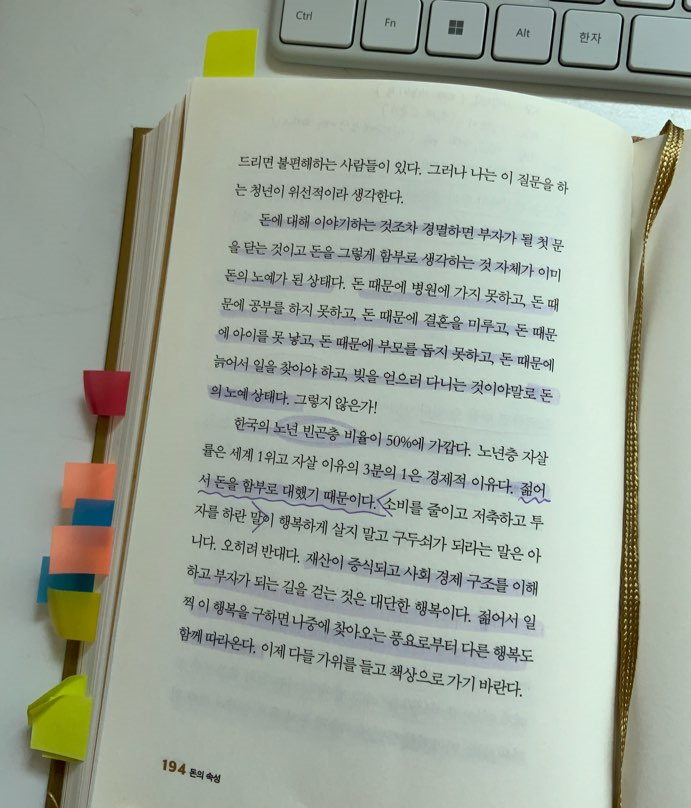 Ctrl
Fn
Alt
한자
드리면 불편해하는 사람들이 있다. 그러나 나는 이 질문을 하
는 청년이 위선적이라 생각한다.
돈에 대해 이야기하는 것조차 경멸하면 부자가 될 첫 문
을 닫는 것이고 돈을 그렇게 함부로 생각하는 것 자체가 이미
돈의 노예가 된 상태다. 돈 때문에 병원에 가지 못하고, 돈 때
문에 공부를 하지 못하고, 돈 때문에 결혼을 미루고, 돈 때문
에 아이를 못 낳고, 돈 때문에 부모를 돕지 못하고, 돈 때문에
늙어서 일을 찾아야 하고, 빚을 얻으러 다니는 것이야말로 돈
의 노예 상태다. 그렇지 않은가!
한국의 노년 빈곤층 비율이 50%에 가깝다. 노년층 자살
률은 세계 1위고 자살 이유의 3분의 1은 경제적 이유다. 젊어
서 돈을 함부로 대했기 때문이다. 소비를 줄이고 저축하고 투
자를 하란 말이 행복하게 살지 말고 구두쇠가 되라는 말은 아
니다. 오히려 반대다. 재산이 증식되고 사회 경제 구조를 이해
하고 부자가 되는 길을 걷는 것은 대단한 행복이다. 젊어서 일
찍 이 행복을 구하면 나중에 찾아오는 풍요로부터 다른 행복도
함께 따라온다. 이제 다들 가위를 들고 책상으로 가기 바란다.
194 돈의 속성